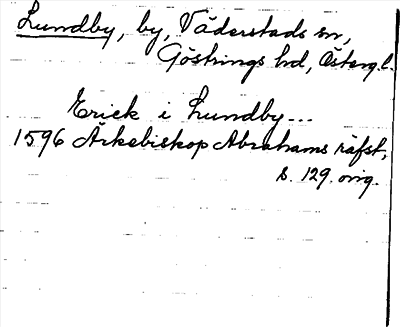 Lundby, by, Väderstads sn,
Göstrings hd, Östergl.
Erick i Lundby...
1596 Ärkebiskop Abrahams räfst,
s. 129. orig.